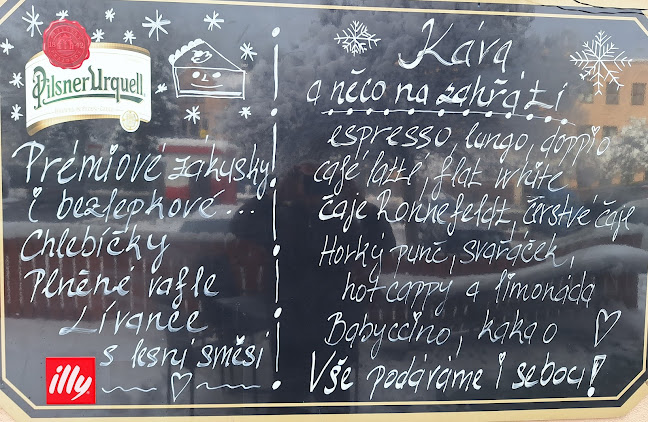 Pilsner Urquell
Prémiové zákusky
i bezlepkové...
Chlebíčky
Plněné vafle
Lívance
s lesní směsí
illy
Káva
a něco na zahřátí
espresso, lungo, doppio
café latté, flat white
čaje Ronnefeldt, čerstvé čaje
Horký punč, svařáček,
hot cappy a limonáda
Babyccino, kakao
Vše podáváme i sebou!